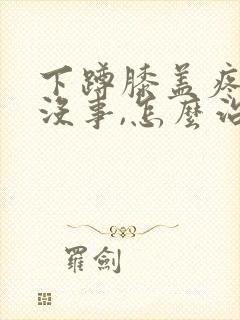 下蹲膝盖疼
没事,怎麽治
羅劍